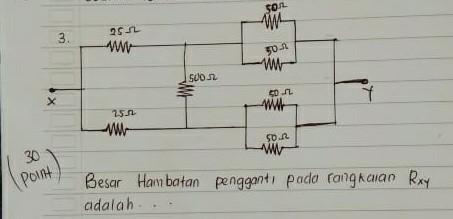 50 Ω
3.
25 Ω
50 Ω
500 Ω
X
50 Ω
Y
25 Ω
50 Ω
(30 Point)
Besar Hambatan pengganti pada rangkaian Rxy
adalah . . .